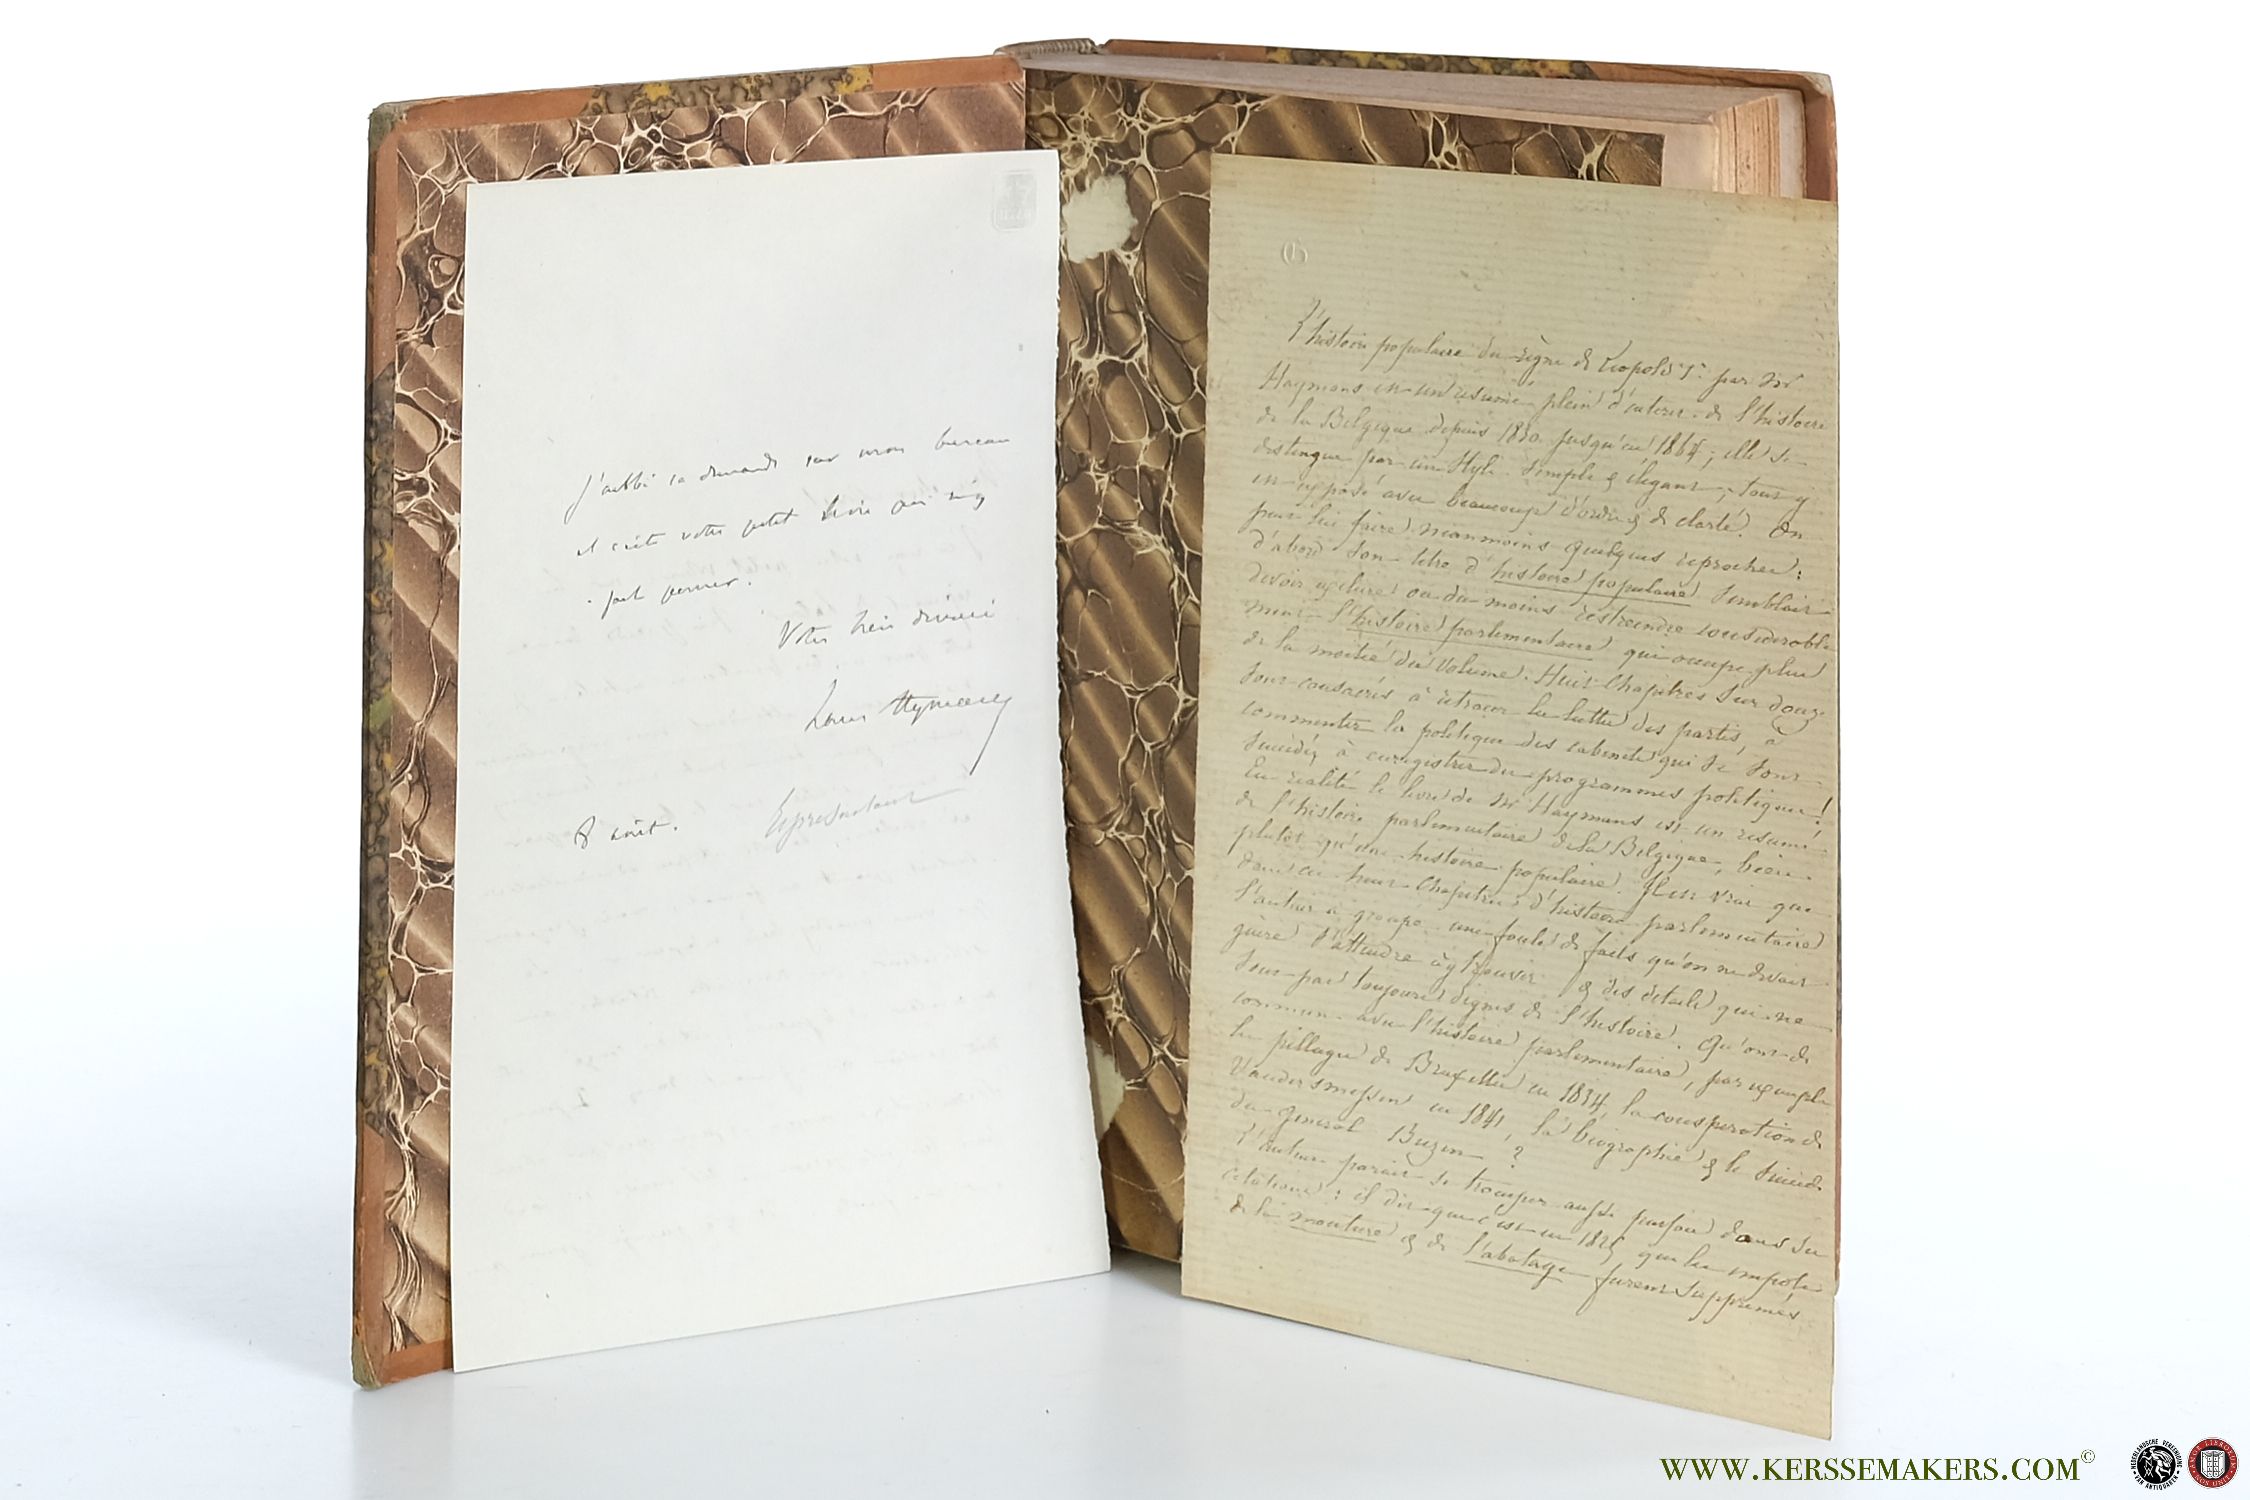 J'oublie
votre petit livre
fait
Votre bien dévoué
Louis Hymans
8 août.
Représentant
L'histoire populaire du règne de Léopold 1er par Mr
Haymans est un résumé plein d'interet de l'histoire
de la Belgique depuis 1830 jusqu'en 1864; elle se
distingue par un Style Simple & élégant; tout y
est exposé avec beaucoup d'ordre & de clarté. On
peut lui faire neanmoins quelques reproches:
d'abord Son titre d'histoire populaire Semblait
devoir exclure ou du moins restreindre considerable
ment l'histoire parlementaire qui occupe plus
de la moitié du volume. Huit Chapitres Sur douze
Sont consacrés à retracer la lutte des partis, à
commenter la politique des cabinets qui Se Sont
Succédés à enregistrer des programmes politiques!
En realité le livre de Mr Haymans est un resumé
de l'histoire parlementaire de la Belgique, bien
plutot qu'une histoire populaire. Il est vrai que
dans ces huit Chapitres d'histoire parlementaire
l'auteur a groupé une foule de faits qu'on ne devait
guère S'attendre à y trouver & des details qui ne
Sont pas toujours dignes de l'histoire. Qu'ont de
commun avec l'histoire parlementaire, par exemple
le pillage de Bruxelles en 1834, la conspiration de
Vandersmissen en 1841, la biographie & le Suicide
du general Buzen ?
L'auteur parait Se tromper aussi parfois dans Ses
citations: il dit que c'est en 1825 que les impots
de la mouture & de l'abatage furent Supprimés
WWW.KERSSEMAKERS.COM©
NEDERLANDSCHE VEREENIGING VAN ANTIQUAREN
AMOR LIBRORUM NOS UNIT